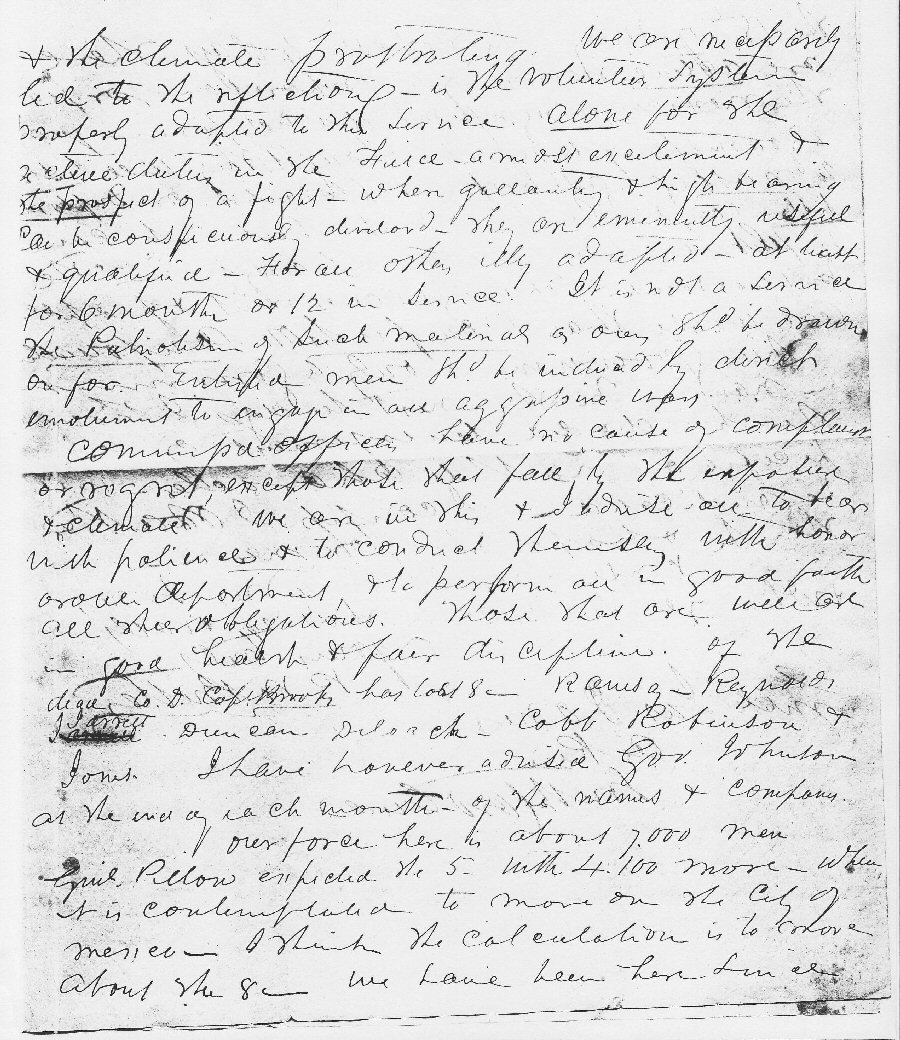 & the climate prostrating. We are necessarily
led to the reflection – is the volunteer system
properly adapted to this service. alone for the
active duties in the Fierce – amidst excitement &
the prospect of a fight – where gallantry & high bearing
Can be conspicuously – they are eminently useful
& qualified – For all other illy adapted – at least
for 6 months or 12 in service. It is not a service
the Patriotism of such material as ours shd be drawn
on for. Enlisted men shd be induced by direct
emolument to engage in an aggressive war
Commissd officers have no cause of complaint
or regret, except those that fall by the exposure
& climate. We are in this & advise all to bear
with patience & to conduct themselves with honor
deportment, & to perform all in good faith
all their obligations. Those that are well are
in good health & fair discipline. of the
Co. D. Capt Brooks has lost 8 – Ramsay – Reynolds
Jarrett Duncan Deloach – Cobb Robinson &
Jones. I have however advised Gov. Johnson
at the end of each month – of the names & company.
our force here is about 7.000 men
Genl. Pillow expected the 5 – with 4.100 more – When
it is contemplated to move on the City of
mexico – I think the calculation is to move
about the 8 – We have been here since